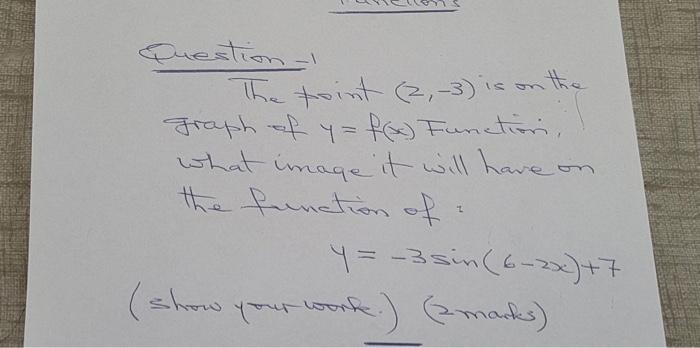 Functions
Question-1
The point (2,-3) is on the
graph of y = f(x) Function,
what image it will have on
the function of :
y = -3 sin(6-2x)+7
(show your work.) (2 marks)